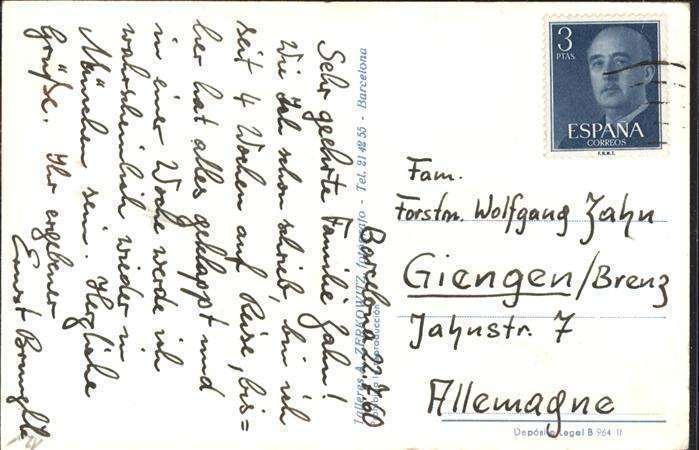 Barcelona, 22.7.60
Sehr geehrte Familie Zahn!
Wie ich schon schrieb, bin ich
seit 4 Wochen auf Reise, bis=
her hat alles geklappt und
in einer Woche werde ich
wahrscheinlich wieder in
München sein. Herzliche
Grüße. Ihr ergebener
Ernst
Talleres A. ZERKOWITZ Fotógrafo - Tel. 21 42 55 - Barcelona
3
PTAS
ESPAÑA
CORREOS
F.N.M.T.
Fam.
Forstm. Wolfgang Zahn
Giengen/Brenz
Jahnstr. 7
Allemagne
Depósito Legal B. 964 II